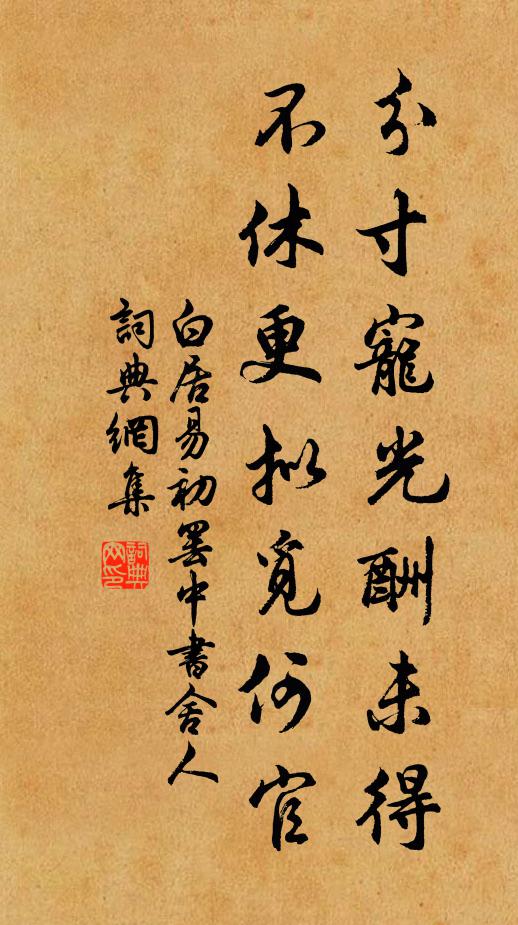 分寸寵光酬未得
不休更拟覓何官
白居易初罢中書舍人
詞典網集
詞典网印